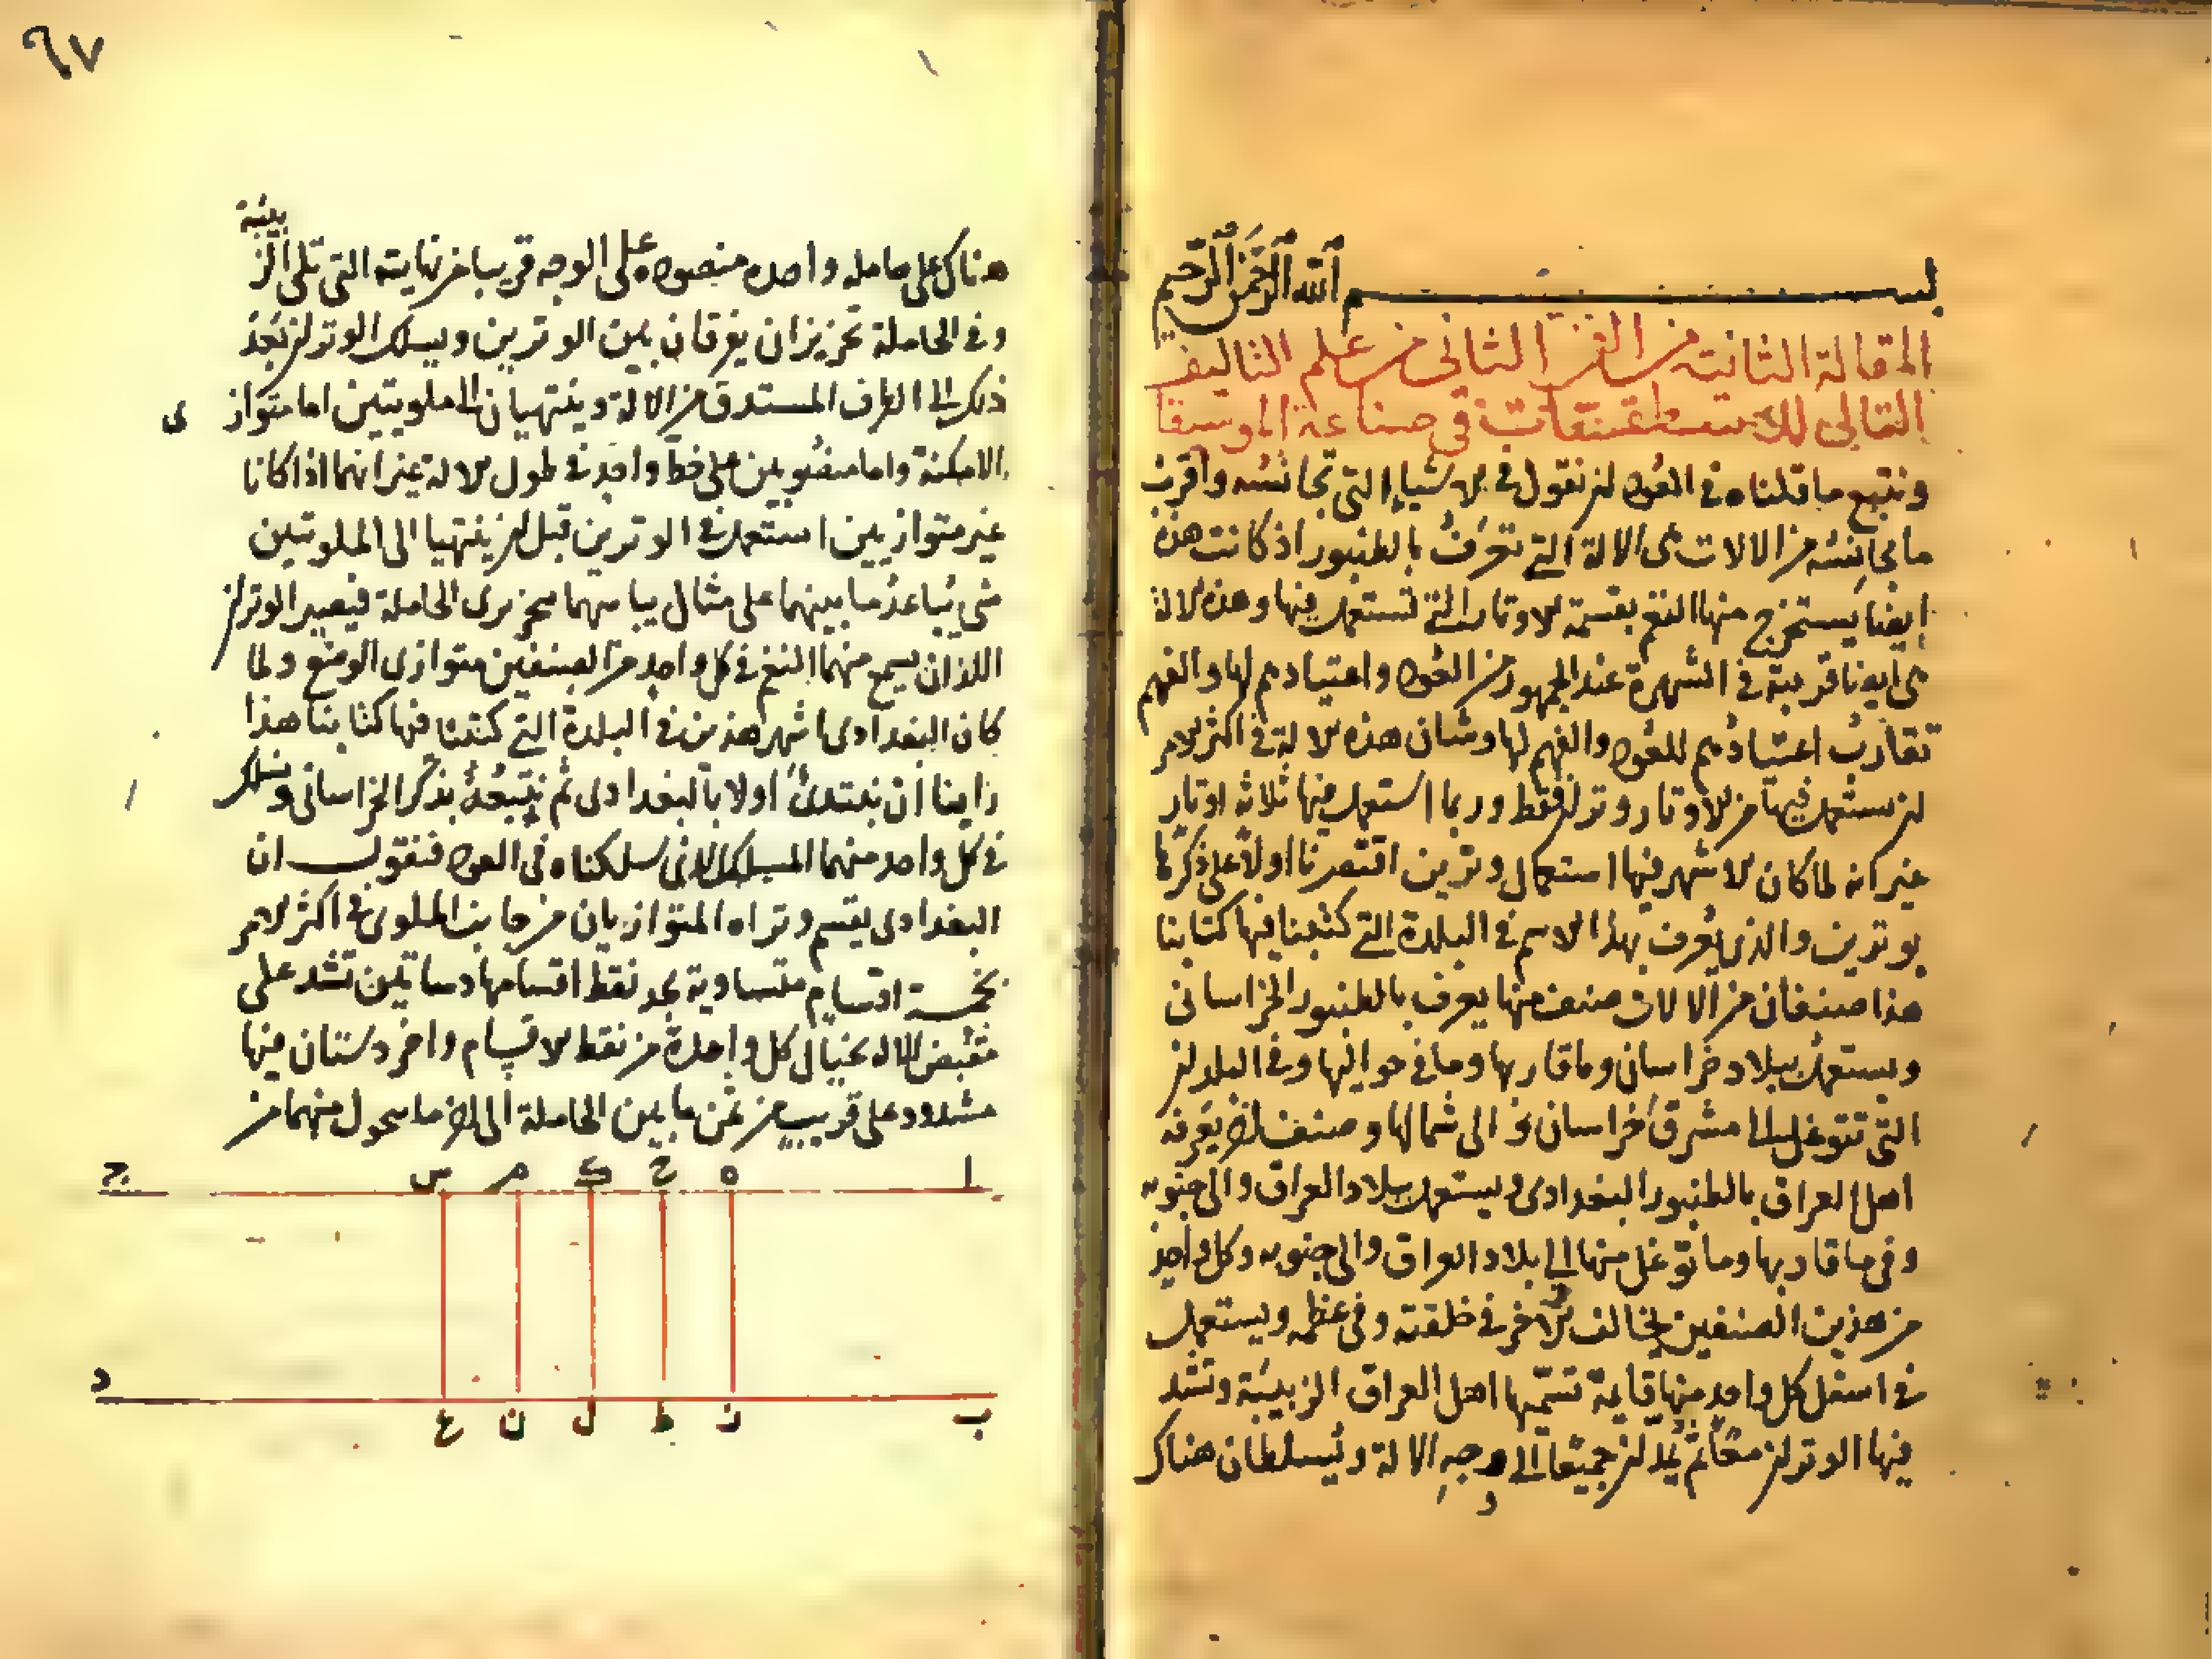 بسم الله الرحمن الرحيم
المقالة الثانية من الفن الثاني من علم التاليف
التالي للاسطقسات في صناعة الموسيقا
ونتبع ما قلناه في العود ان نقول في الاشياء التي تجانسه واقرب
ما يجانسه من الالات هى الالة التي تعرف بالطنبور اذ كانت هذه
ايضا يستخرج منها النغم بقسمة الاوتار التي تستعمل فيها وهذه الالة
هى ايضا قريبة في الشهرة عند الجمهور من العود واعتيادهم لها والفهم
تقارب اعتيادهم للعود والفهم لها وشان هذه الالة في اكثر الامر
ان يستعمل فيها من الاوتار وتران فقط وربما استعمل فيها ثلاثه اوتار
غير انه لما كان الاشهر فيها استعمال وترين اقتصرنا اولا على ذكرها
بوترين والذي يعرف بهذا الاسم في البلدة التي كتبنا فيها كتابنا
هذا صنفان من الالات صنف منها يعرف بالطنبور الخراساني
ويستعمل ببلاد خراسان وما قاربها وما في حواليها وفي البلدان
التي تتوغل الى مشرق خراسان و الى شمالها وصنف اخر يعرفه
اهل العراق بالطنبور البغدادى ويستعمل ببلاد العراق والى جنوبه
وفي ما قاربها وما توغل منها الى بلاد العراق والى جنوبه وكل واحد
من هذين الصنفين يخالف الاخر في خلقته وفي عظمه ويستعمل
في اسفل كل واحد منها قايمة تسميها اهل العراق الزبيبة وتشد
فيها الوتران معا ثم يمد ان جميعا الى وجه الالة ويسلطان هناك
٦٧
هناك على حاملة واحده منصوبه على الوجه قريبا من نهايته التي تلى الزبيبة
وفي الحاملة تحزيزان يفرقان بين الوترين ويسلك الوتران بعد
ذلك الى الطرف المستدق من الالة وينتهيان الى ملويتين اما متوازى
الامكنة واما منصوبين على خط واحد في طول الالة غير انهما اذا كانا
غير متوازيين استعمل في الوترين قبل ان ينتهيا الى الملوتين
شى يباعد ما بينهما على مثال يباينهما محززى الحاملة فيصير الوتران
اللذان يسمع منهما النغم في كل واحد من الصنفين متوازى الوضع ولما
كان البغدادى اشهر هذين في البلدة التي كتبنا فيها كتابنا هذا
راينا ان نبتدئ اولا بالبغدادى ثم نتبعه بذكر الخراسانى ونسلك
في كل واحد منهما المسلك الذى سلكناه في العود فنقول ان
البغدادى يقسم وتراه المتوازيان من جانب الملوى في اكثر الامر
بخمسة اقسام متساوية بحد نقط اقسامها دساتين تشد على
مقبض الالة بحيال كل واحدة من نقط الاقسام واخر دستان منها
مشدود على قريب من ثمن ما بين الحاملة الى اخر ما يحول منهما من
ا ه ح ك م س ج
ب ز ط ل ن ع د